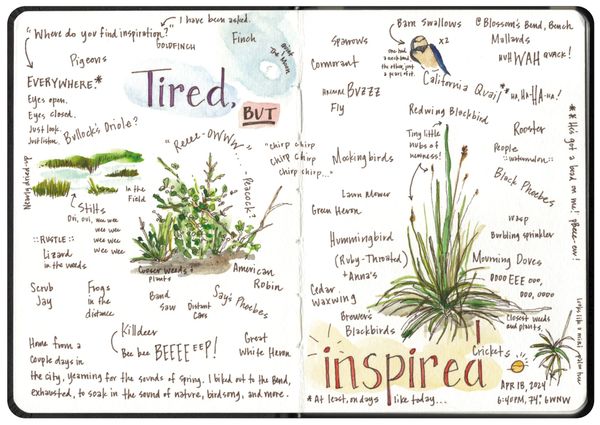 "Where do you find inspiration?"
I have been asked.
GOLDFINCH
Finch
Pigeons
EVERYWHERE.*
Eyes open.
Eyes closed.
Just look.
Just listen.
Bullock's Oriole?
Tired,
BUT
"Reeee-OWWW...
- Peacock?
"chirp chirp
chirp chirp
chirp chirp..."
Nearly dried-up
In the
Field
Stilts
:: RUSTLE ::
Lizard
in the weeds
Closer weeds &
plants
American
Robin
Scrub
Jay
Frogs
in the
distance
Band
Saw
Distant
Cars
Say's Phoebes
Killdeer
Bee bee BEEEEEP!
Great
White Heron
Home from a
couple days in
the city, yearning for the sounds of spring. I biked out to the Bend,
exhausted, to soak in the sound of nature, birdsong, and more.
Sparrows
Cormorant
Buzzz
Fly
Barn Swallows
x2
@Blossom's Bend, Bench
Mallards
HUH WAH QUACK!
California Quail*
HA, HA-HA-HA!
Redwing Blackbird
Tiny little
nubs of
newness!
Rooster
People
::watermelon::
** this got a bead on me!
Mockingbirds
Black Phoebes
Lawn Mower
Green Heron
Wasp
Burbling sprinkler
Hummingbird
(Ruby-Throated)
+ Anna's
Mourning Doves
OOOO EEE OOO,
OOO, OOOO
Cedar
Waxwing
Brewer's
Blackbirds
Closest weeds
and plants.
looks like a mini palm tree
Crickets
inspired
*At least, on days like today...
APR 18, 2024
6:40PM, 74°, 6WNW